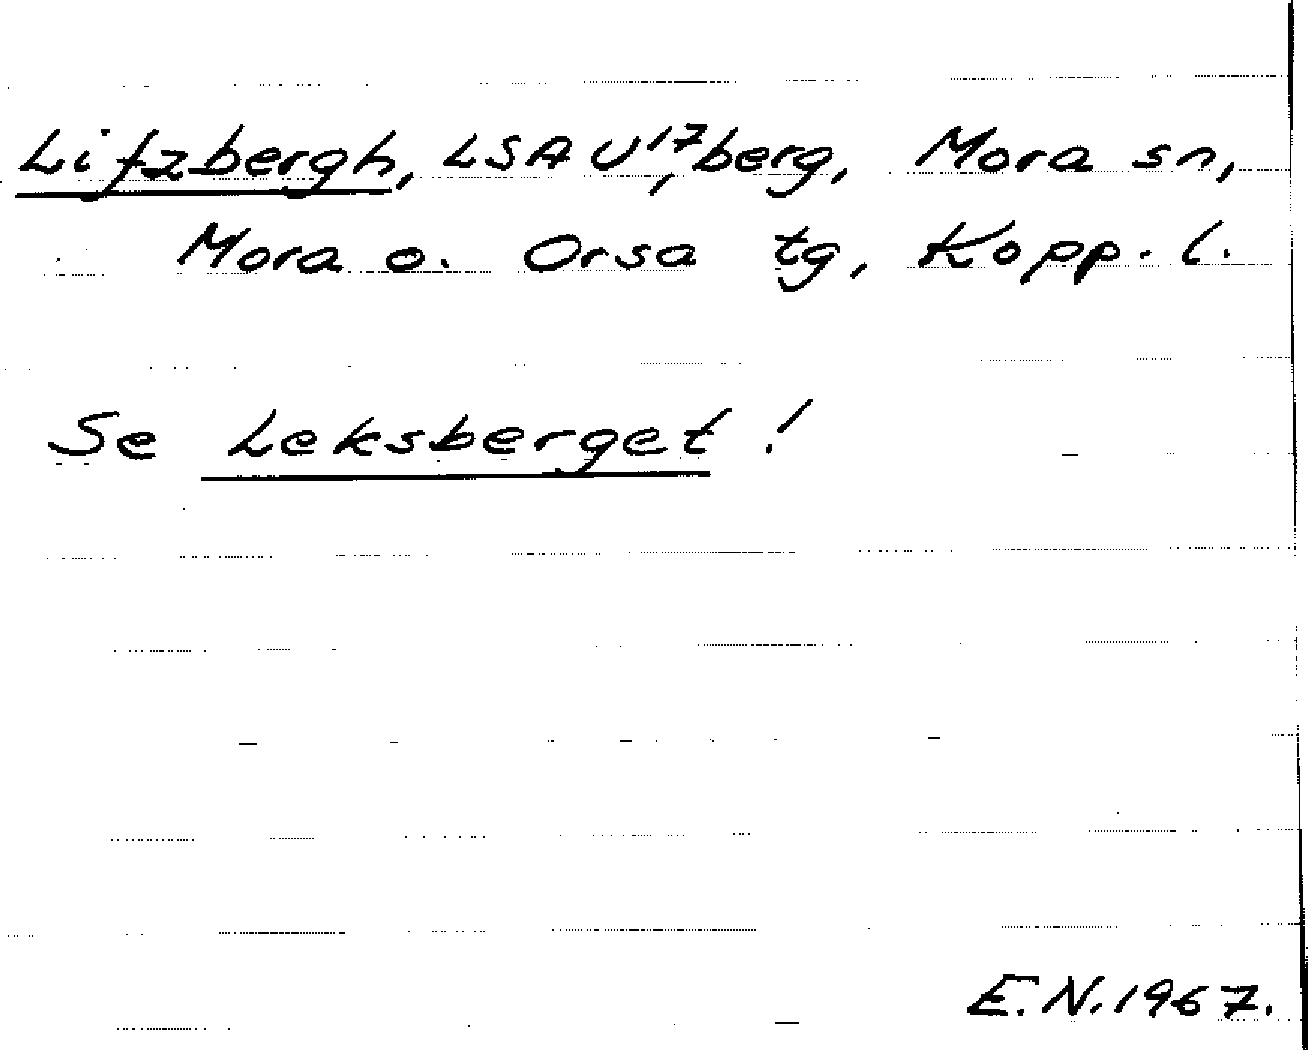 Lifzbergh, LSA U¹⁷, berg, Mora sn,
Mora o. Orsa tg, Kopp. l.
Se Leksberget!
E.N. 1967.